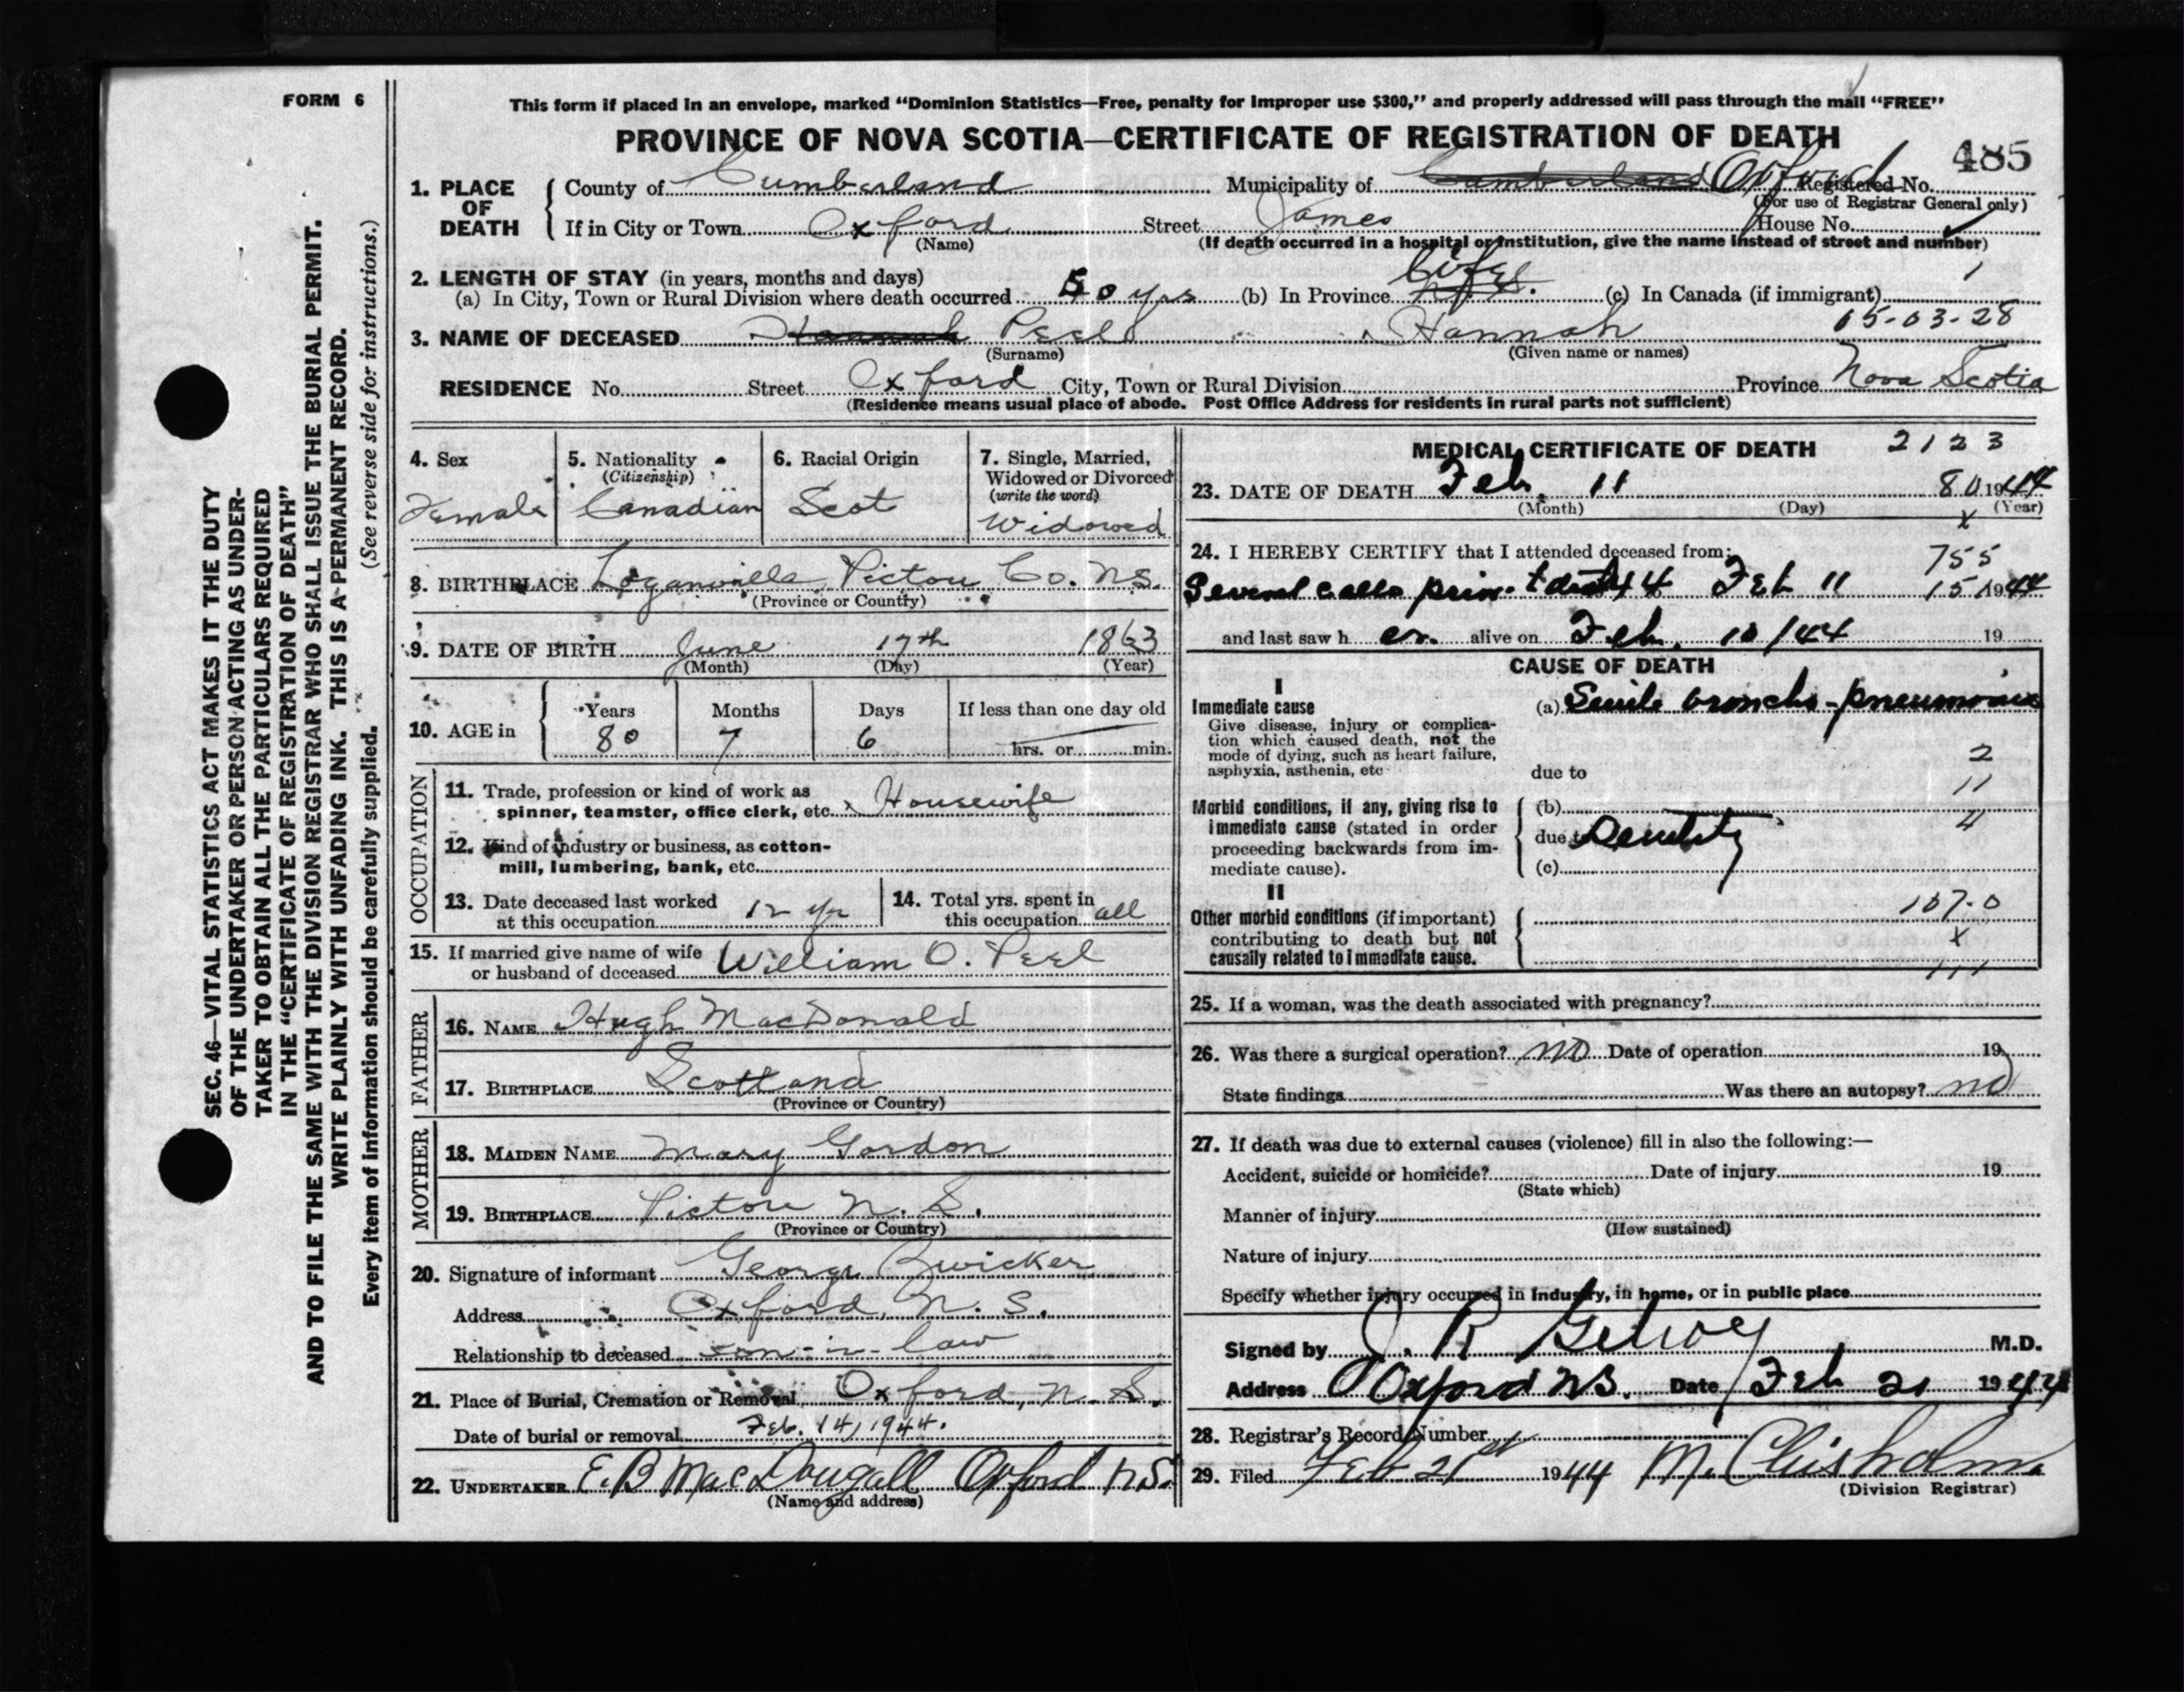 FORM 6
This form if placed in an envelope, marked "Dominion Statistics—Free, penalty for improper use $300," and properly addressed will pass through the mail "FREE"
PROVINCE OF NOVA SCOTIA—CERTIFICATE OF REGISTRATION OF DEATH
485
1. PLACE OF DEATH
County of Cumberland Municipality of Cumberland Oxford Registered No.
(For use of Registrar General only)
If in City or Town Oxford Street James House No.
(Name) (If death occurred in a hospital or institution, give the name instead of street and number)
2. LENGTH OF STAY (in years, months and days)
(a) In City, Town or Rural Division where death occurred 50 yrs (b) In Province N.S. Life (c) In Canada (if immigrant)
15-03-28
3. NAME OF DECEASED Hannah Peel Hannah
(Surname) (Given name or names)
RESIDENCE No. Street Oxford City, Town or Rural Division Province Nova Scotia
(Residence means usual place of abode. Post Office Address for residents in rural parts not sufficient)
4. Sex
Female
5. Nationality
(Citizenship)
Canadian
6. Racial Origin
Scot
7. Single, Married, Widowed or Divorced
(write the word)
Widowed
8. BIRTHPLACE Loganville, Pictou Co. N.S.
(Province or Country)
9. DATE OF BIRTH June 17th 1863
(Month) (Day) (Year)
10. AGE in
Years Months Days If less than one day old
80 7 6 hrs. or min.
OCCUPATION
11. Trade, profession or kind of work as
spinner, teamster, office clerk, etc. Housewife
12. Kind of industry or business, as cotton-
mill, lumbering, bank, etc.
13. Date deceased last worked
at this occupation 12 yr
14. Total yrs. spent in
this occupation all
15. If married give name of wife
or husband of deceased William O. Peel
FATHER
16. NAME Hugh MacDonald
17. BIRTHPLACE Scotland
(Province or Country)
MOTHER
18. MAIDEN NAME Mary Gordon
19. BIRTHPLACE Pictou N.S.
(Province or Country)
20. Signature of informant George Zwicker
Address Oxford, N.S.
Relationship to deceased son-in-law
21. Place of Burial, Cremation or Removal Oxford, N.S.
Date of burial or removal Feb. 14, 1944.
22. UNDERTAKER E.B MacDougall Oxford N.S.
(Name and address)
MEDICAL CERTIFICATE OF DEATH
2123
23. DATE OF DEATH Feb. 11 80 1944
(Month) (Day) (Year)
x
24. I HEREBY CERTIFY that I attended deceased from:
755
Several calls prior to death Feb 11 15 1944
and last saw her alive on Feb. 10/44 19
CAUSE OF DEATH
I
Immediate cause
Give disease, injury or complica-
tion which caused death, not the
mode of dying, such as heart failure,
asphyxia, asthenia, etc
(a) Senile broncho-pneumonia
2
due to
11
Morbid conditions, if any, giving rise to
immediate cause (stated in order
proceeding backwards from im-
mediate cause).
(b)
4
due to Senility
(c)
II
Other morbid conditions (if important)
contributing to death but not
causally related to immediate cause.
107-0
x
25. If a woman, was the death associated with pregnancy?
26. Was there a surgical operation? no Date of operation 19
State findings Was there an autopsy? no
27. If death was due to external causes (violence) fill in also the following:—
Accident, suicide or homicide? Date of injury 19
(State which)
Manner of injury
(How sustained)
Nature of injury
Specify whether injury occurred in industry, in home, or in public place
Signed by J. R. Gilroy M.D.
Address Oxford NS. Date Feb 21 1944
28. Registrar's Record Number
29. Filed Feb 21st 1944 M. Chisholm
(Division Registrar)
SEC. 46—VITAL STATISTICS ACT MAKES IT THE DUTY
OF THE UNDERTAKER OR PERSON ACTING AS UNDER-
TAKER TO OBTAIN ALL THE PARTICULARS REQUIRED
IN THE "CERTIFICATE OF REGISTRATION OF DEATH"
AND TO FILE THE SAME WITH THE DIVISION REGISTRAR WHO SHALL ISSUE THE BURIAL PERMIT.
WRITE PLAINLY WITH UNFADING INK. THIS IS A PERMANENT RECORD.
Every item of information should be carefully supplied. (See reverse side for instructions.)